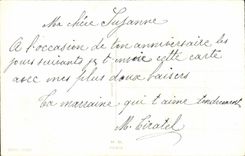 Ma Nièce Suzanne
A l'occasion de ton anniversaire les
jours suivants je t'envoie cette carte
avec mes plus doux baisers
Ta marraine qui t'aime tendrement
M.